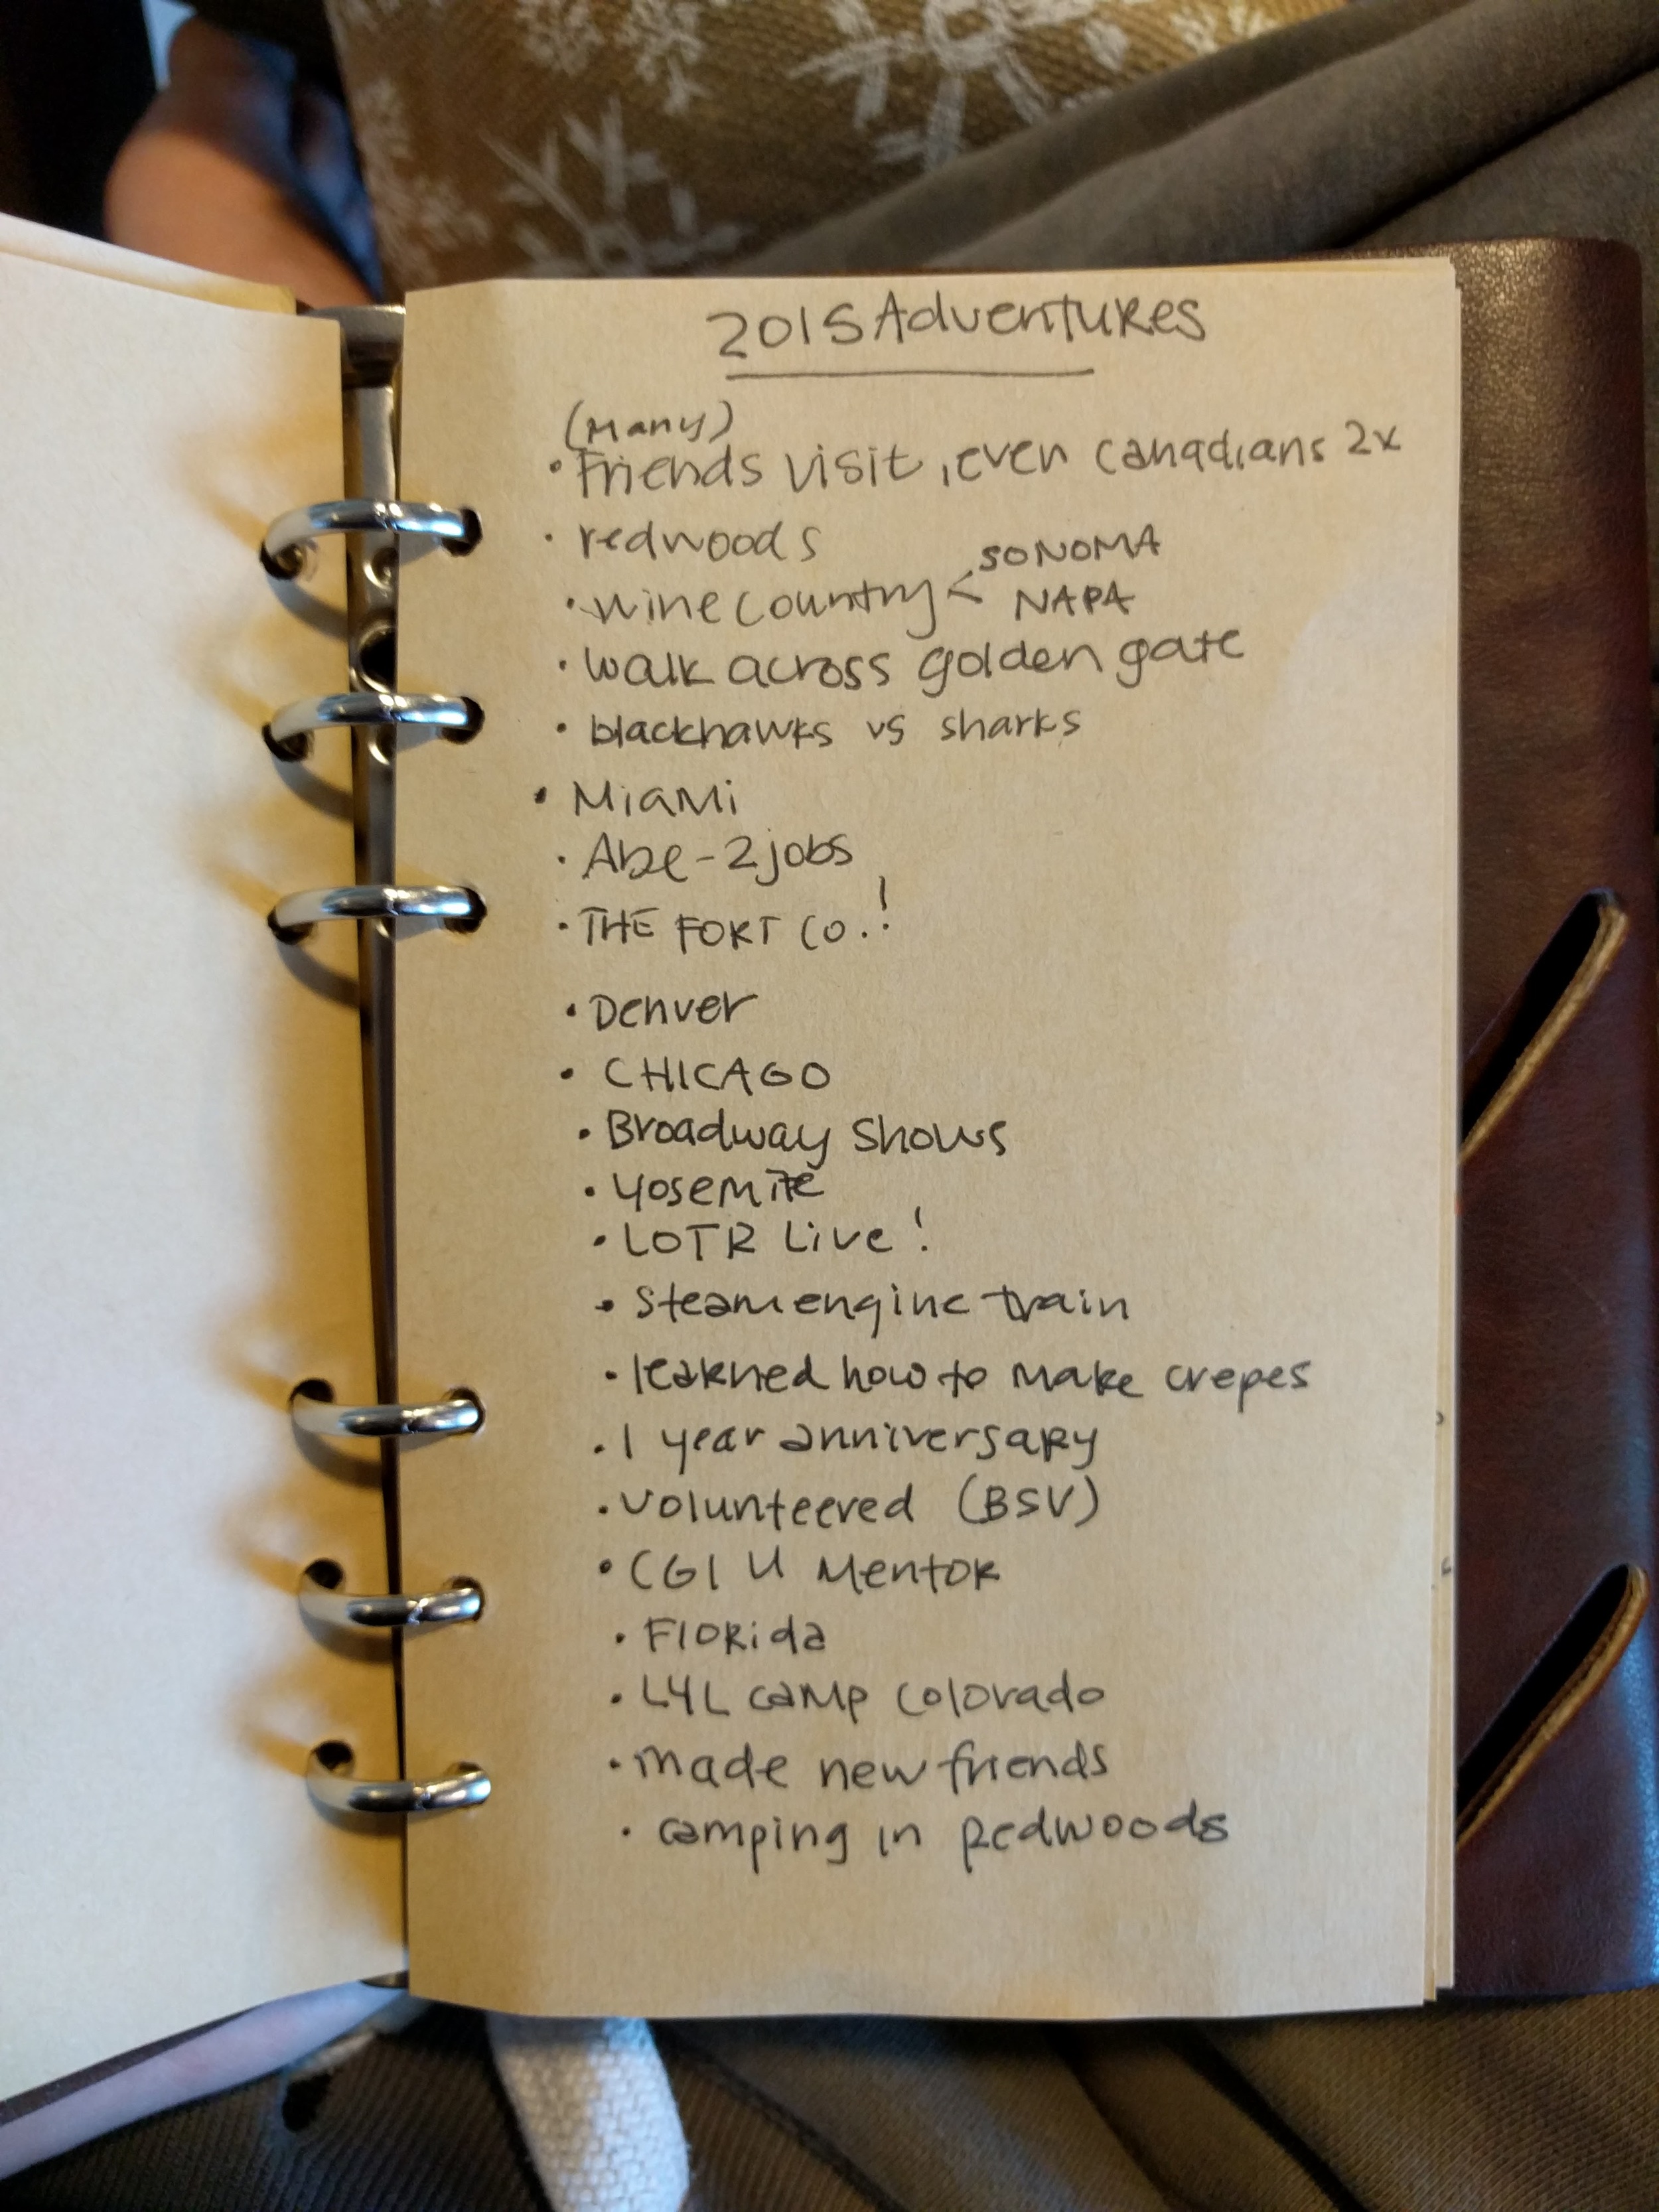 2015 Adventures
(Many)
• Friends visit, even Canadians 2x
• redwoods
SONOMA
• wine country <
NAPA
• walk across golden gate
• blackhawks vs sharks
• Miami
• Abe - 2 jobs
• THE FORT CO.!
• Denver
• CHICAGO
• Broadway shows
• Yosemite
• LOTR Live!
• steam engine train
• learned how to make crepes
• 1 year anniversary
• volunteered (BSV)
• CGI U Mentor
• Florida
• L4L camp Colorado
• made new friends
• camping in Redwoods